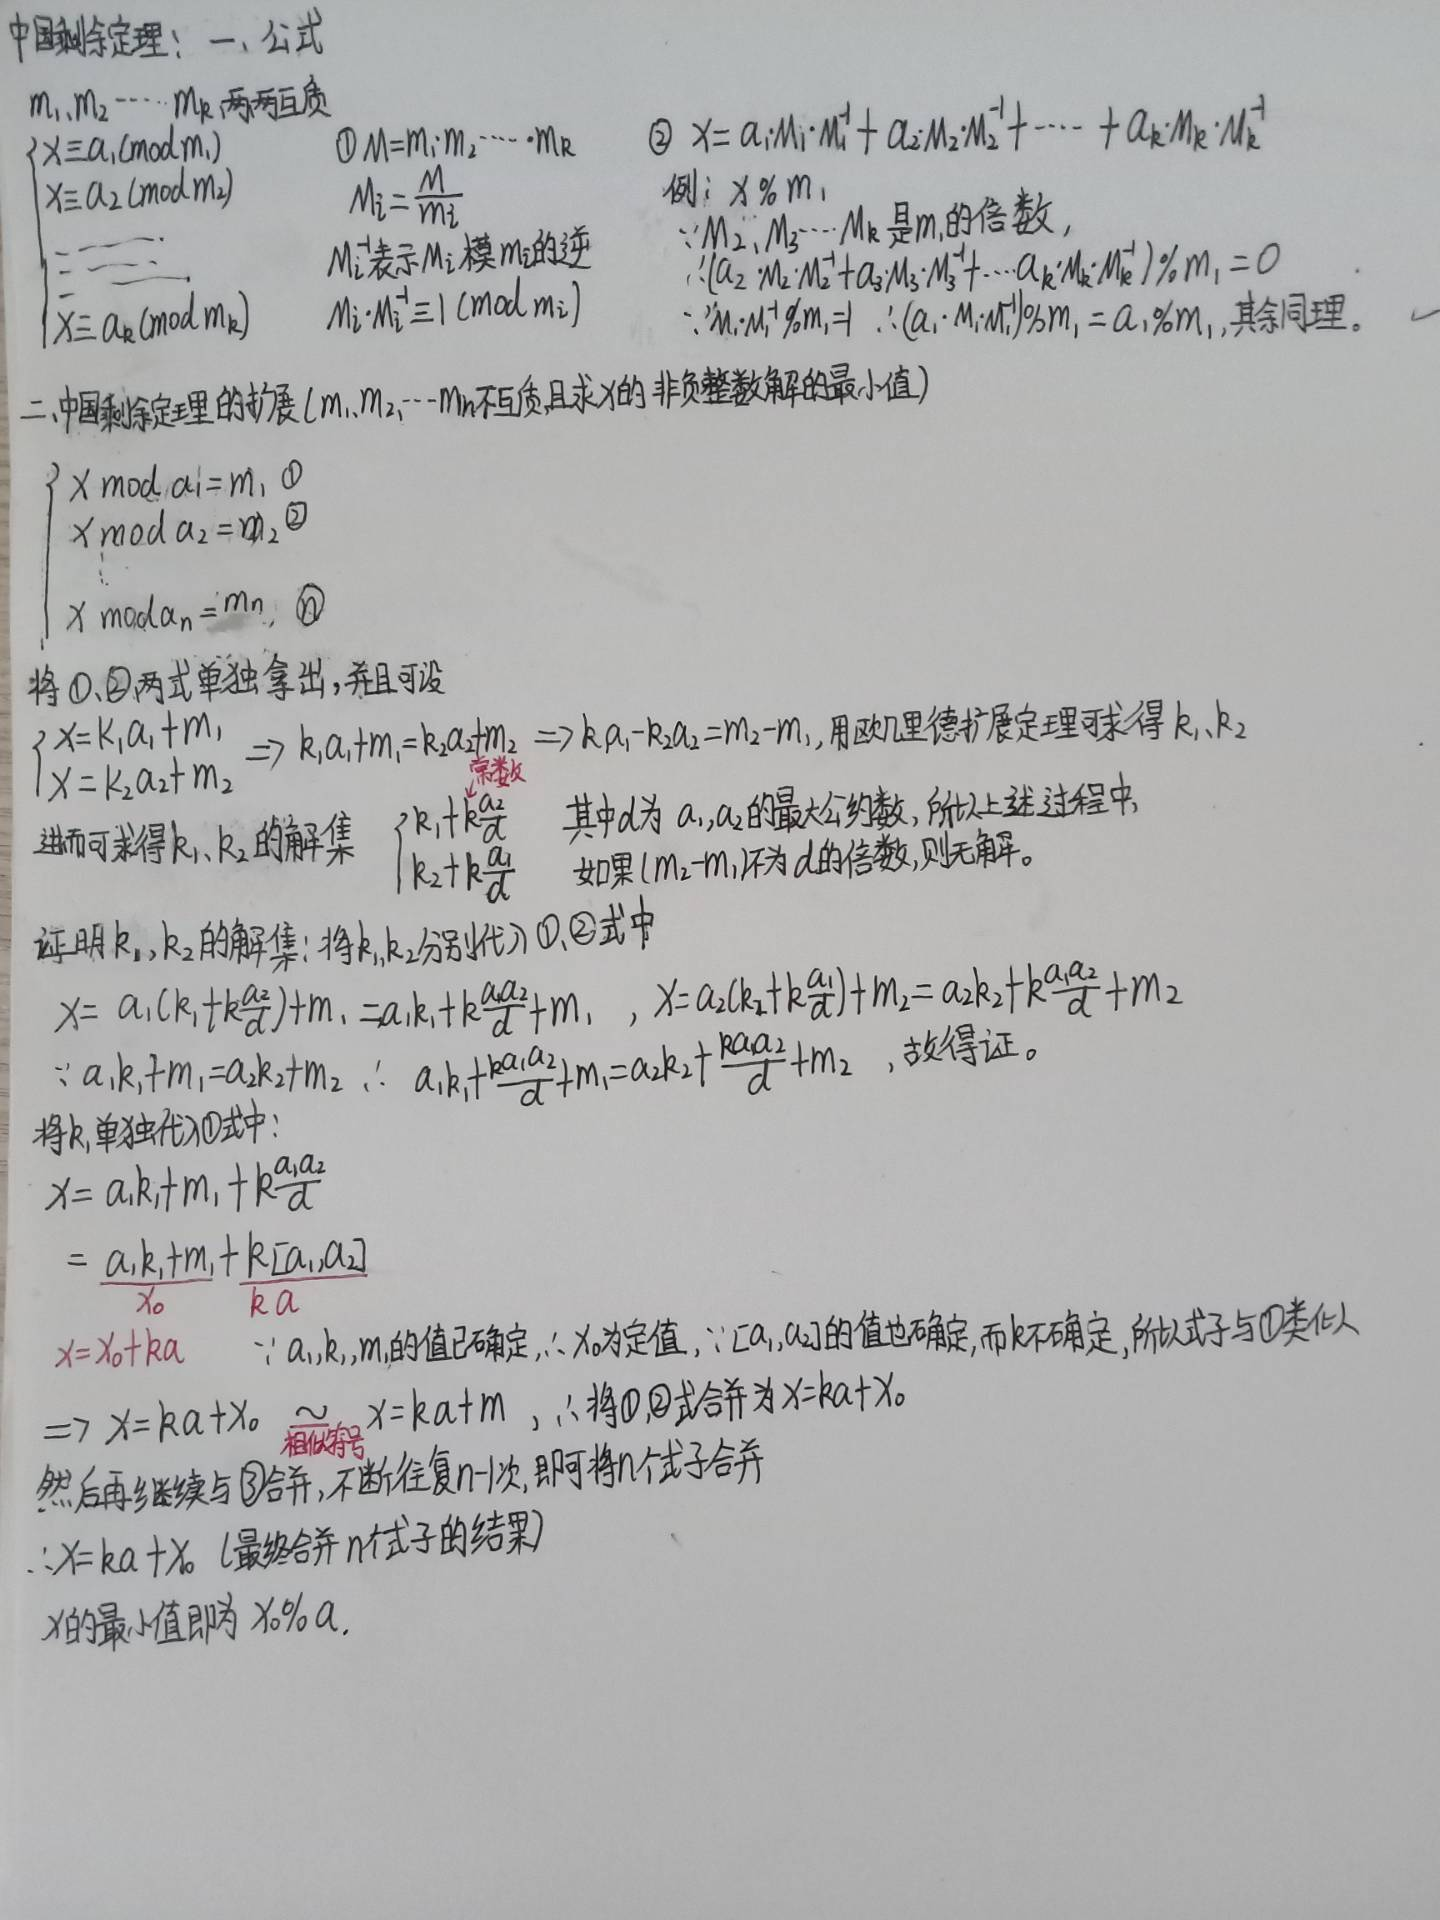 中国剩余定理：一、公式
m₁、m₂ ····· mₖ两两互质
x≡a₁(mod m₁)
x≡a₂(mod m₂)
x≡aₖ(mod mₖ)
① M=m₁·m₂·····mₖ
Mᵢ=M/mᵢ
Mᵢ⁻¹表示Mᵢ模mᵢ的逆
Mᵢ·Mᵢ⁻¹≡1(mod mᵢ)
② x=a₁·M₁·M₁⁻¹+a₂·M₂·M₂⁻¹+····+aₖ·Mₖ·Mₖ⁻¹
例：x%m₁
∵M₂、M₃····Mₖ是m₁的倍数，
∴(a₂·M₂·M₂⁻¹+a₃·M₃·M₃⁻¹+····aₖ·Mₖ·Mₖ⁻¹)%m₁=0
∵M₁·M₁⁻¹%m₁=1 ∴(a₁·M₁·M₁⁻¹)%m₁=a₁%m₁,其余同理。
二、中国剩余定理的扩展(m₁、m₂,···mₙ不互质,且求x的非负整数解的最小值)
x mod a₁=m₁ ①
x mod a₂=m₂ ②
⋮
x mod aₙ=mₙ, ⓝ
将①、②两式单独拿出,并且可设
x=k₁a₁+m₁
x=k₂a₂+m₂
⇒ k₁a₁+m₁=k₂a₂+m₂ ⇒ k₁a₁-k₂a₂=m₂-m₁,用欧几里德扩展定理可求得k₁、k₂
常数
进而可求得k₁、k₂的解集
k₁+k a₂/d
k₂+k a₁/d
其中d为a₁,a₂的最大公约数,所以上述过程中,
如果(m₂-m₁)不为d的倍数,则无解。
证明k₁,k₂的解集:将k₁,k₂分别代入①、②式中
x=a₁(k₁+k a₂/d)+m₁=a₁k₁+k a₁a₂/d+m₁，x=a₂(k₂+k a₁/d)+m₂=a₂k₂+k a₁a₂/d+m₂
∵a₁k₁+m₁=a₂k₂+m₂ ∴ a₁k₁+ka₁a₂/d+m₁=a₂k₂+ka₁a₂/d+m₂，故得证。
将k₁单独代入①式中:
x=a₁k₁+m₁+k a₁a₂/d
=a₁k₁+m₁+k[a₁,a₂]
x₀ ka
x=x₀+ka ∵a₁,k₁,m₁的值已确定,∴x₀为定值,∵[a₁,a₂]的值也确定,而k不确定,所以式子与①类似
⇒ x=ka+x₀ ~ x=ka+m，∴将①,②式合并为x=ka+x₀
相似符号
然后再继续与③合并,不断往复n-1次,即可将n个式子合并
∴x=ka+x₀(最终合并n个式子的结果)
x的最小值即为x₀%a.